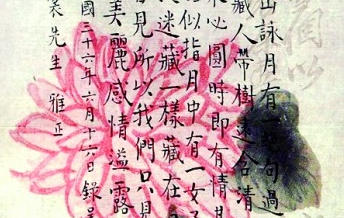 山詠月有一句過
藏人帶樹遠含清
心圓時即有情
似指月中有一女
迷藏一樣藏在
見所以我們只見
美麗感情溢露
國三十六年六月十六日錄
先生 雅正